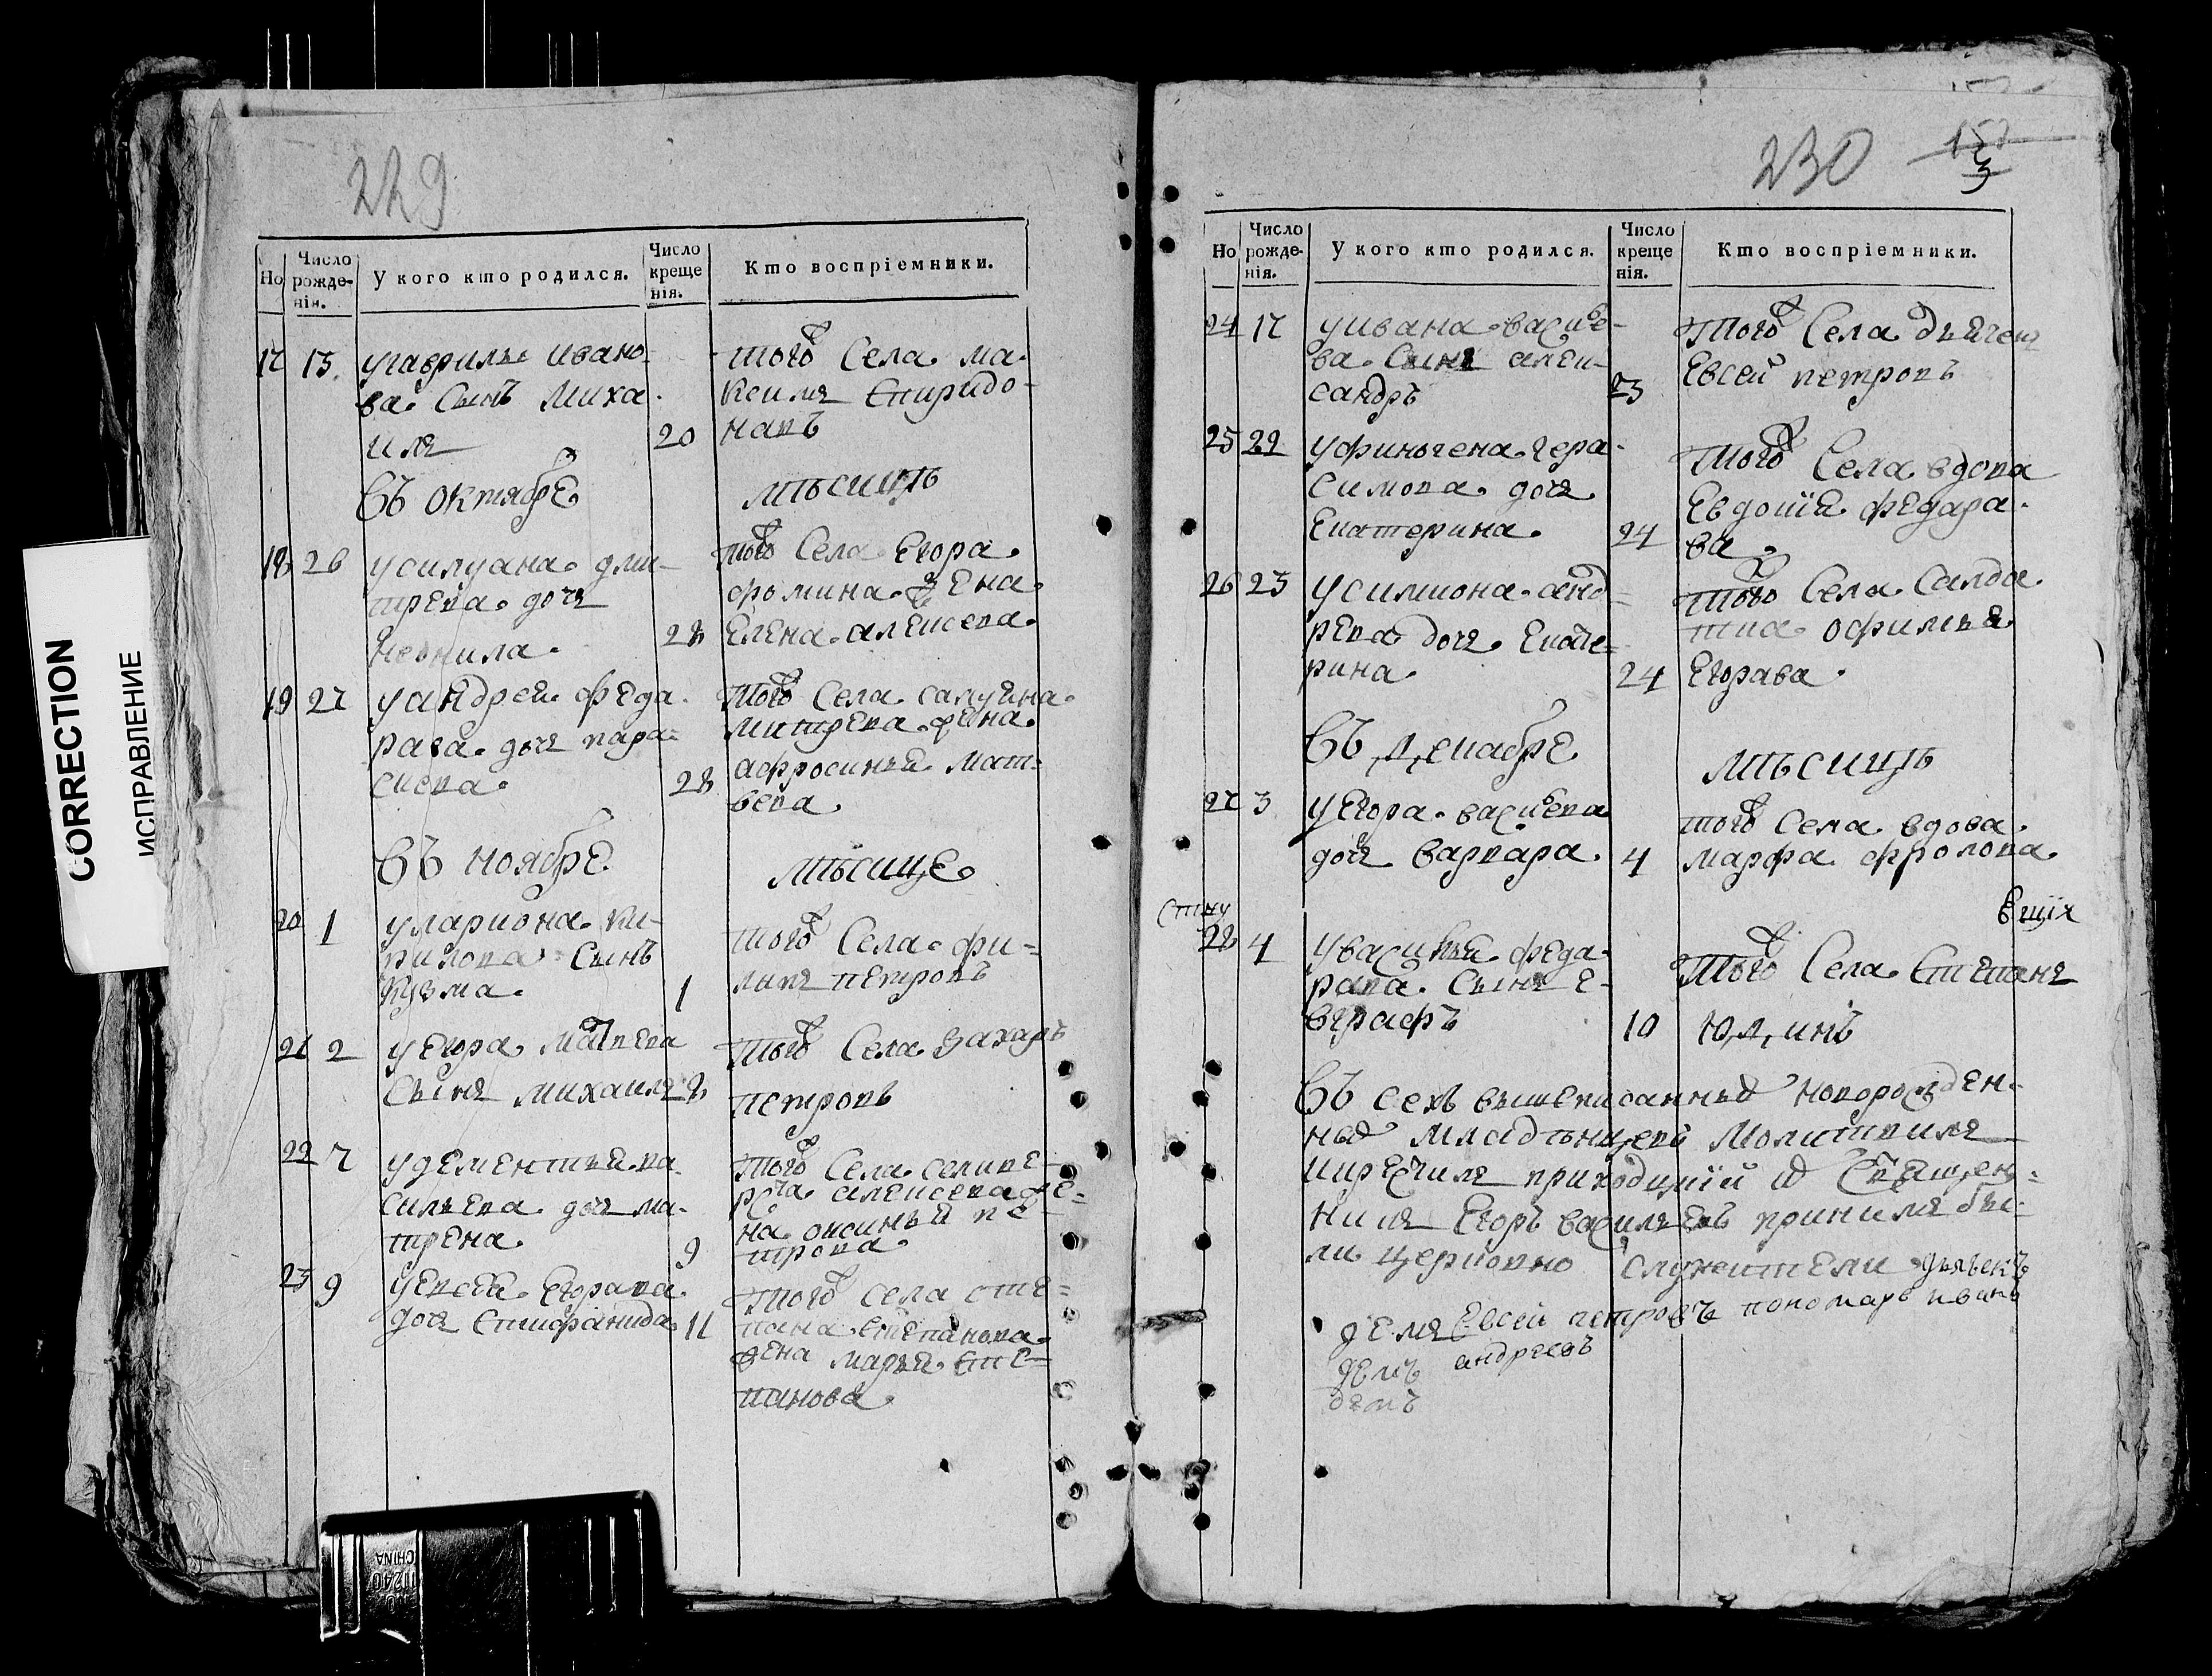 229
Но
Число рожденія.
У кого кто родился.
Число крещенія.
Кто воспріемники.
17 13. у гаврилы ивано-
ва. Сынъ Миха-
илъ 20
того Села ма-
ксимъ Спиридо-
навъ
Въ октябрѣ мѣсицѣ
18 26 у силуана. дми-
трева. дочь
Неонила. 28
того Села. Егора.
фомина. жена.
Елена. алексева.
19 27 у андрея. феда-
рава. дочь пара-
скева. 28
того Села. самуйла.
митрева. жена.
афросинья мат-
вева.
Въ ноябрѣ мѣсице
20 1 у лариона. ки-
рилова. Сынъ
Кузма. 1
того Села. фи-
липъ петровъ
21 2 у Егора матвева
Сынъ михаилъ 8
того Села Захаръ
петровъ
22 7 у дементья. ва-
сильева дочь ма-
трена. 9
того Села. селиве-
рста алексева же-
на оксинья пе
трова.
23 9 у евсея. Егорава.
дочь Епифанида 11
того села сте-
пана. Степанова.
жена марья. Сте-
панова.
CORRECTION
ИСПРАВЛЕНИЕ
CHINA
230
Но
Число рожденія.
У кого кто родился.
Число крещенія.
Кто воспріемники.
24 17 у ивана. васиве-
ва. Сынъ алек-
сандръ 23
того Села дьячект
Евсей петровъ
25 22 у финогена. гера-
симова. дочь
Екатерина. 24
того Села вдова
Евдокия федара-
ва.
26 23 у симиона. анд-
рева дочь. Екате-
рина. 24
того Села. Салда-
тка офимья
Егорава.
Въ декабрѣ мѣсицѣ
27 3 у Егора. васиева
дочь варвара. 4
того Села. вдова.
марфа фролова.
28 4 у василья. феда-
рава. Сынъ Е-
вграфъ 10
того Села. Степанъ
Юдинъ
Въ сехъ вышеписанныхъ новорожден-
ныхъ младѣнцевъ Молитвилъ
и крестилъ приходцкий Священ-
никъ Егоръ васильевъ приниемъ бы-
ли церковно служители дьячекъ
Евсей петровъ пономарь иванъ
андреевъ